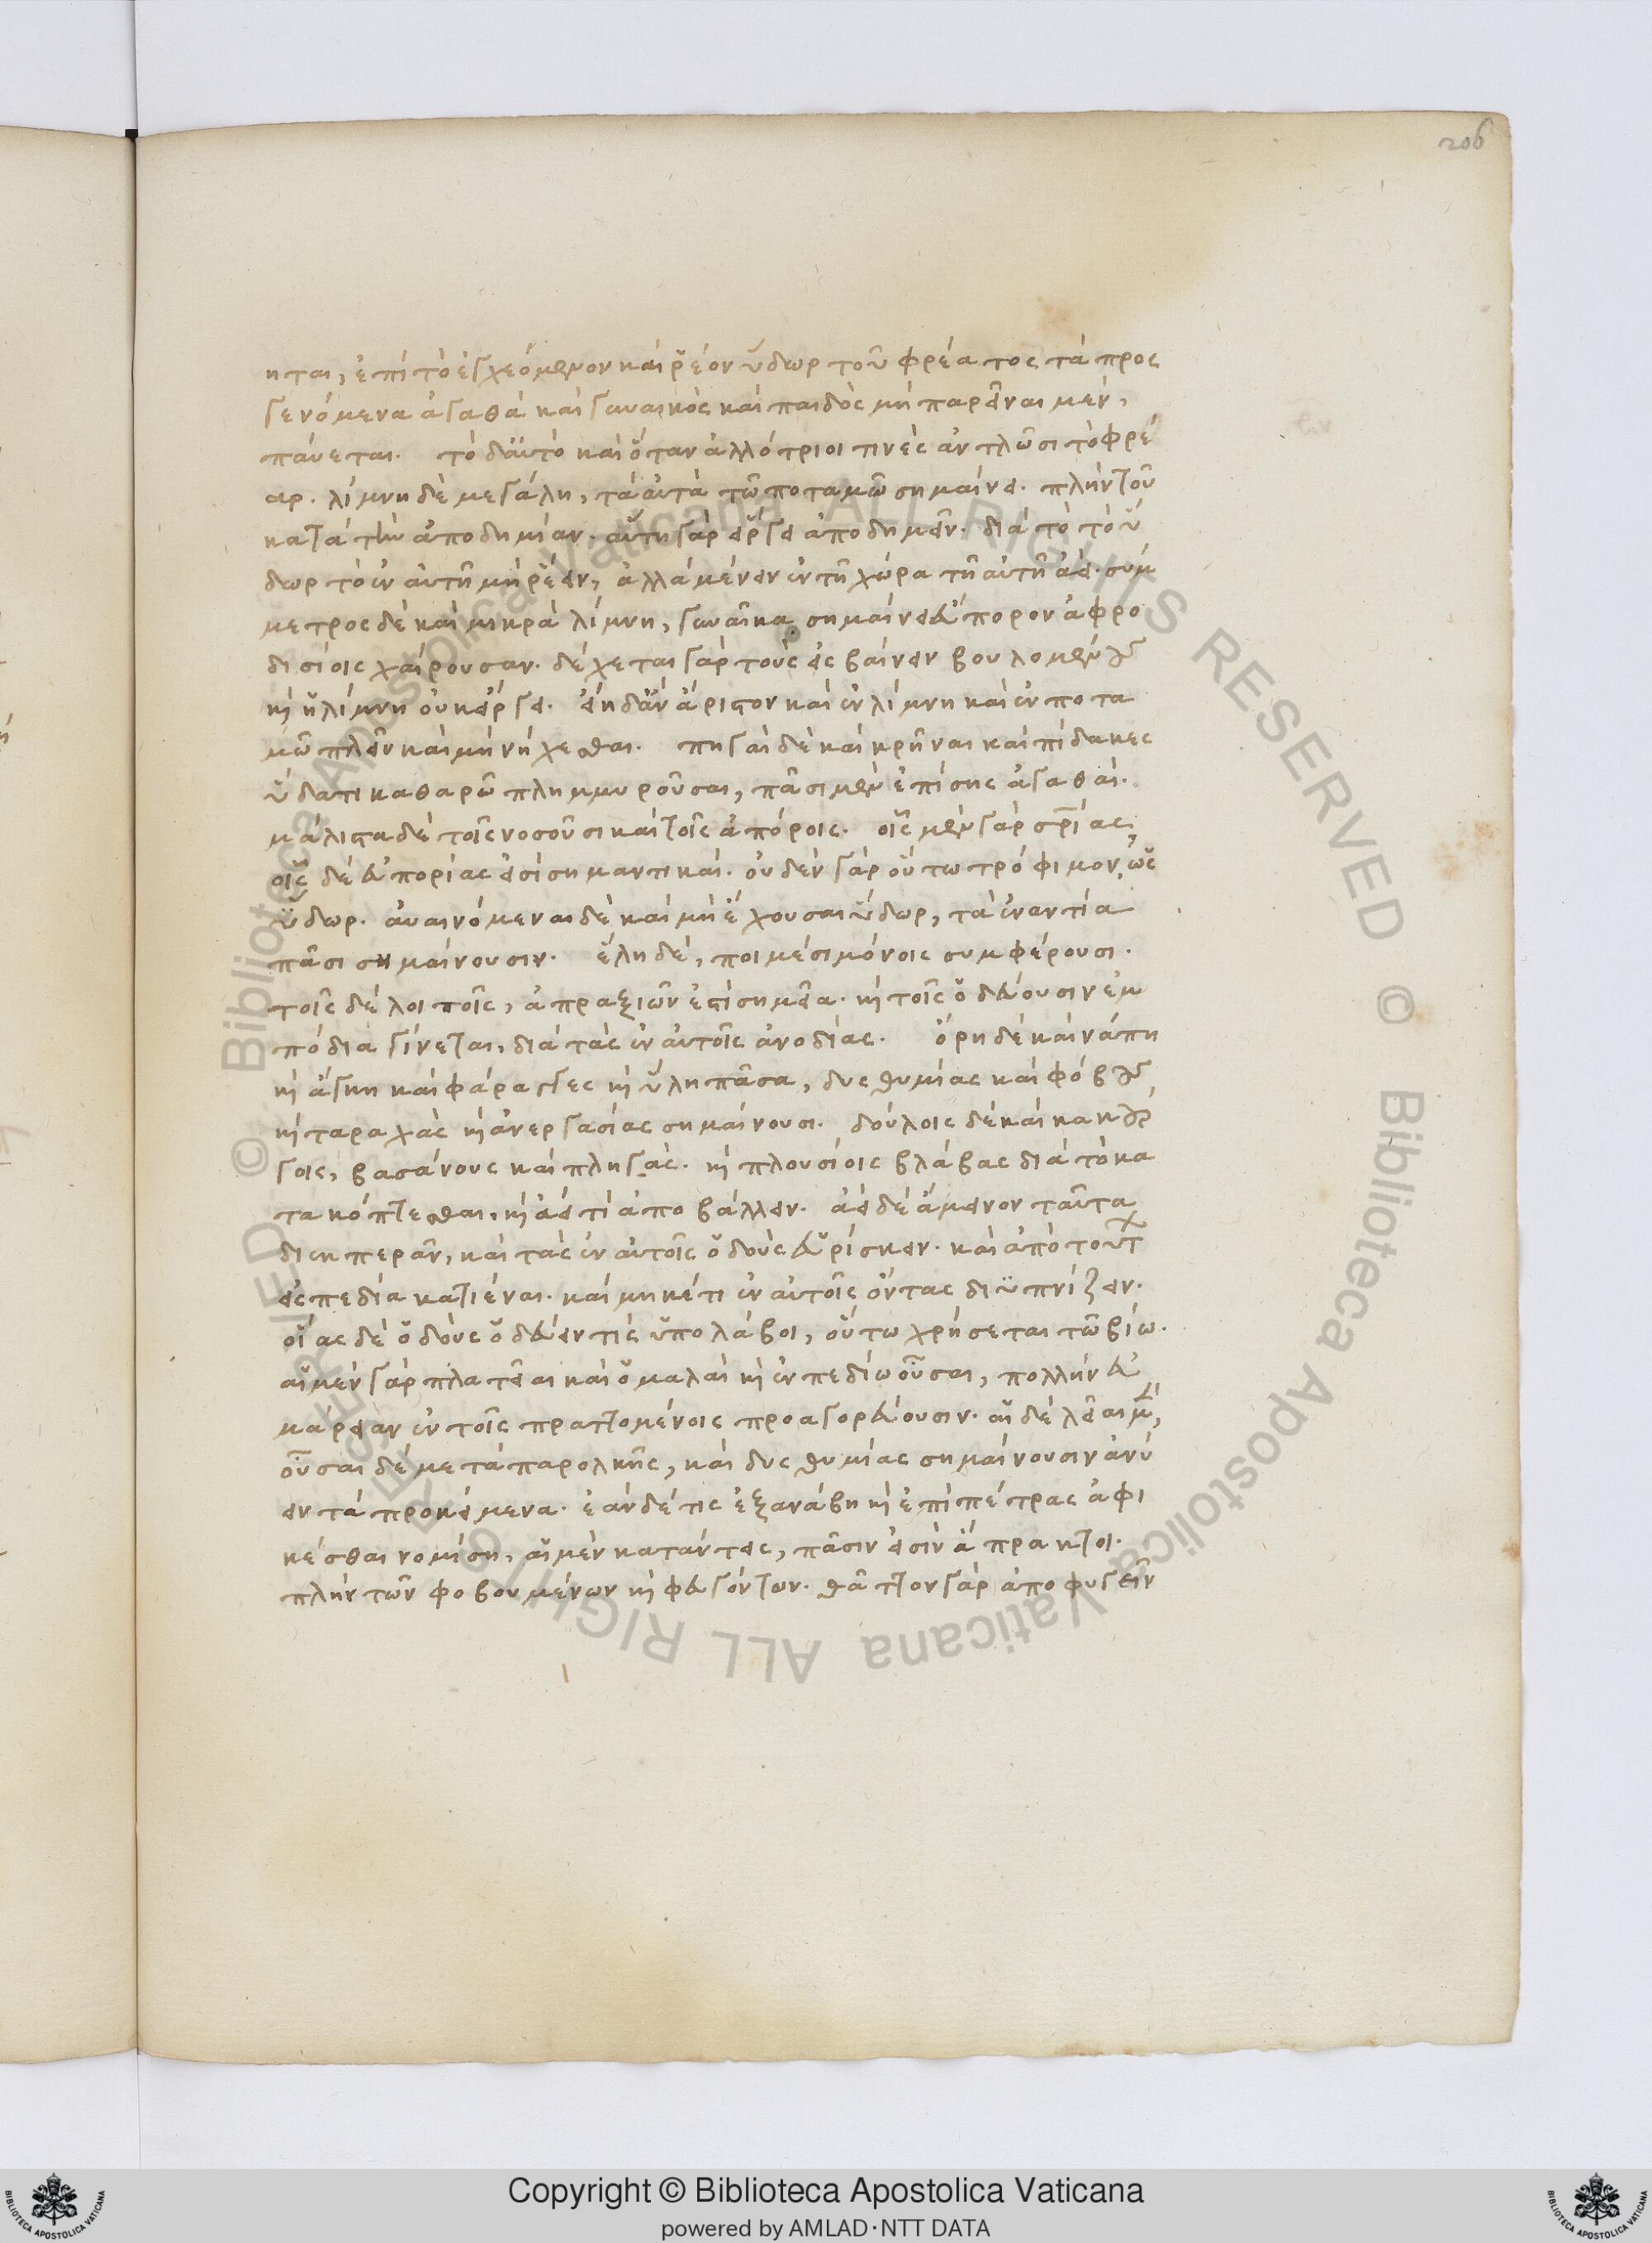 206
ηται, ἐπὶ τὸ ἐγχεόμενον καὶ ῥέον ὕδωρ τοῦ φρέατος τὰ προσ
γενόμενα ἀγαθὰ καὶ γυναικὸς καὶ παιδὸς μὴ παρεῖναι μὲν,
παύεται. τὸ δ' αὐτὸ καὶ ὅταν ἀλλότριοι τινὲς ἀντλῶσι τὸ φρέ
αρ. λίμνη δὲ μεγάλη, τὰ αὐτὰ τῶ ποταμῶ σημαίνει. πλὴν τοῦ
κατὰ τὴν ἀποδημίαν. αὕτη γὰρ εἴργει ἀποδημεῖν. διὰ τὸ τὸ ὕ
δωρ τὸ ἐν αὐτῆ μὴ ῥέειν, ἀλλὰ μένειν ἐν τῆ χώρα τῆ αὐτῆ ἀεί. σύμ
μετρος δὲ καὶ μικρὰ λίμνη, γυναῖκα σημαίνει εὔπορον ἀφρο
δισίοις χαίρουσαν. δέχεται γὰρ τοὺς εἰσβαίνειν βουλομένους
καὶ ἡ λίμνη οὐκ εἴργει. εἴη δ' ἂν ἄριστον καὶ ἐν λίμνη καὶ ἐν ποτα
μῶ πλεῖν καὶ μὴ νήχεσθαι. πηγαὶ δὲ καὶ κρῆναι καὶ πίδακες
ὕδατι καθαρῶ πλημμυροῦσαι, πᾶσι μὲν ἐπίσης ἀγαθαί.
μάλιστα δὲ τοῖς νοσοῦσι καὶ τοῖς ἀπόροις. οἷς μὲν γὰρ σ̅ρίας,
οἷς δὲ εὐπορίας εἰσὶ σημαντικαί. οὐδὲν γὰρ οὕτω τρόφιμον, ὡς
ὕδωρ. ἀυαινόμεναι δὲ καὶ μὴ ἔχουσαι ὕδωρ, τὰ ἐναντία
πᾶσι σημαίνουσιν. ἕλη δὲ, ποιμέσι μόνοις συμφέρουσι.
τοῖς δὲ λοιποῖς, ἀπραξιῶν ἐστὶ σημεῖα. καὶ τοῖς ὁδεύουσιν ἐμ
πόδια γίνεται, διὰ τὰς ἐν αὐτοῖς ἀνοδίας. ὄρη δὲ καὶ νάπη
καὶ ἄγκη καὶ φάραγγες καὶ ὕλη πᾶσα, δυσθυμίας καὶ φόβους
καὶ ταραχὰς καὶ ἀνεργασίας σημαίνουσι. δούλοις δὲ καὶ κακούρ
γοις, βασάνους καὶ πληγάς. καὶ πλουσίοις βλάβας διὰ τὸ κα
τακόπτεσθαι, καὶ ἀεί τι ἀποβάλλειν. ἀεὶ δὲ ἄμεινον ταῦτα
διεκπερᾶν, καὶ τὰς ἐν αὐτοῖς ὁδοὺς εὑρίσκειν. καὶ ἀπὸ τούτων
εἰς πεδία κατιέναι. καὶ μηκέτι ἐν αὐτοῖς ὄντας διϋπνίζειν.
οἵας δὲ ὁδοὺς ὁδεύειν τὶς ὑπολάβοι, οὕτω χρήσεται τῶ βίω.
αἱ μὲν γὰρ πλατεῖαι καὶ ὁμαλαὶ καὶ ἐν πεδίω οὖσαι, πολλὴν εὐ
μάρειαν ἐν τοῖς πραττομένοις προαγορεύουσιν. αἱ δὲ λεῖαι μὲν,
οὖσαι δὲ μετὰ παρολκῆς, καὶ δυσθυμίας σημαίνουσιν ἀνύ
ειν τὰ προκείμενα. ἐὰν δέ τις ἐξαναβῆ καὶ ἐπὶ πέτρας ἀφι
κέσθαι νομίση, αἱ μὲν κατάντεις, πᾶσιν εἰσὶν ἄπρακτοι.
πλὴν τῶν φοβουμένων καὶ φευγόντων. θᾶττον γὰρ ἀποφυγεῖν
© Biblioteca Apostolica Vaticana ALL RIGHTS RESERVED © Biblioteca Apostolica Vaticana ALL RIGHTS RESERVED
Copyright © Biblioteca Apostolica Vaticana
powered by AMLAD·NTT DATA
BIBLIOTECA APOSTOLICA VATICANA
BIBLIOTECA APOSTOLICA VATICANA